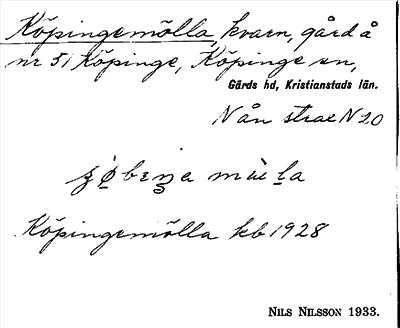 Köpingemölla, kvarn, gård å
nr 51 Köpinge, Köpinge sn,
Gärds hd, Kristianstads län.
N ån strae N 20
Köpingemölla kb 1928
NILS NILSSON 1933.